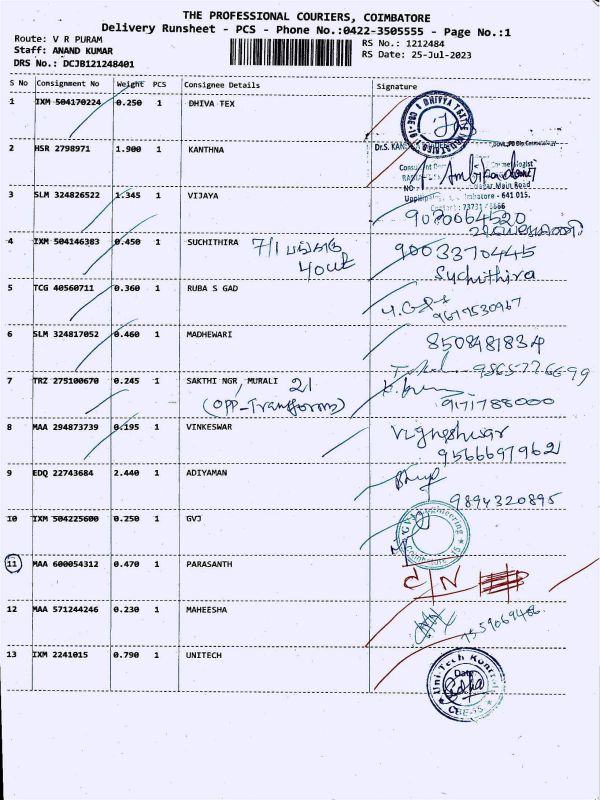 THE PROFESSIONAL COURIERS, COIMBATORE
Delivery Runsheet - PCS - Phone No.:0422-3505555 - Page No.:1
Route: V R PURAM
RS No.: 1212484
Staff: ANAND KUMAR
RS Date: 25-Jul-2023
DRS No.: DCJB121248401
S No Consignment No Weight PCS Consignee Details Signature
1 IXM 504170224 0.250 1 DHIVA TEX
2 HSR 2798971 1.900 1 KANTHNA
Nagar Main Road
641 015.
3 SLM 324826522 1.345 1 VIJAYA
9080664520
4 IXM 504146383 0.450 1 SUCHITHIRA 7/1 9003370445
Suchithira
5 TCG 40560711 0.360 1 RUBA S GAD
9617530967
6 SLM 324817052 0.460 1 MADHEWARI 8508481834
7 TRZ 275100670 0.245 1 SAKTHI NGR, MURALI 21
(OPP-Transform) 9171788000
8 MAA 294873739 0.195 1 VINKESWAR Vigneshwar
9566697962
9 EDQ 22743684 2.440 1 ADIYAMAN
9894320895
10 IXM 504225600 0.250 1 GVJ
GVJ Engineering
Coimbatore-15
11 MAA 600054312 0.470 1 PARASANTH C/N
12 MAA 571244246 0.230 1 MAHEESHA
13 IXM 2241015 0.790 1 UNITECH
Uni-Tech Kontrol
Date
CBE-15